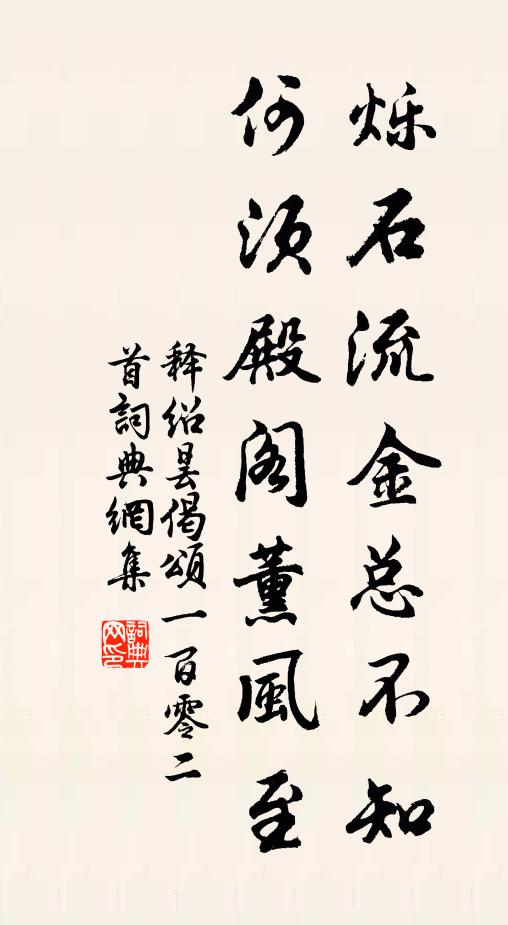 烁石流金总不知
何须殿阁薰风至
释绍昙偈颂一百零二
首詞典網集
詞典
网印